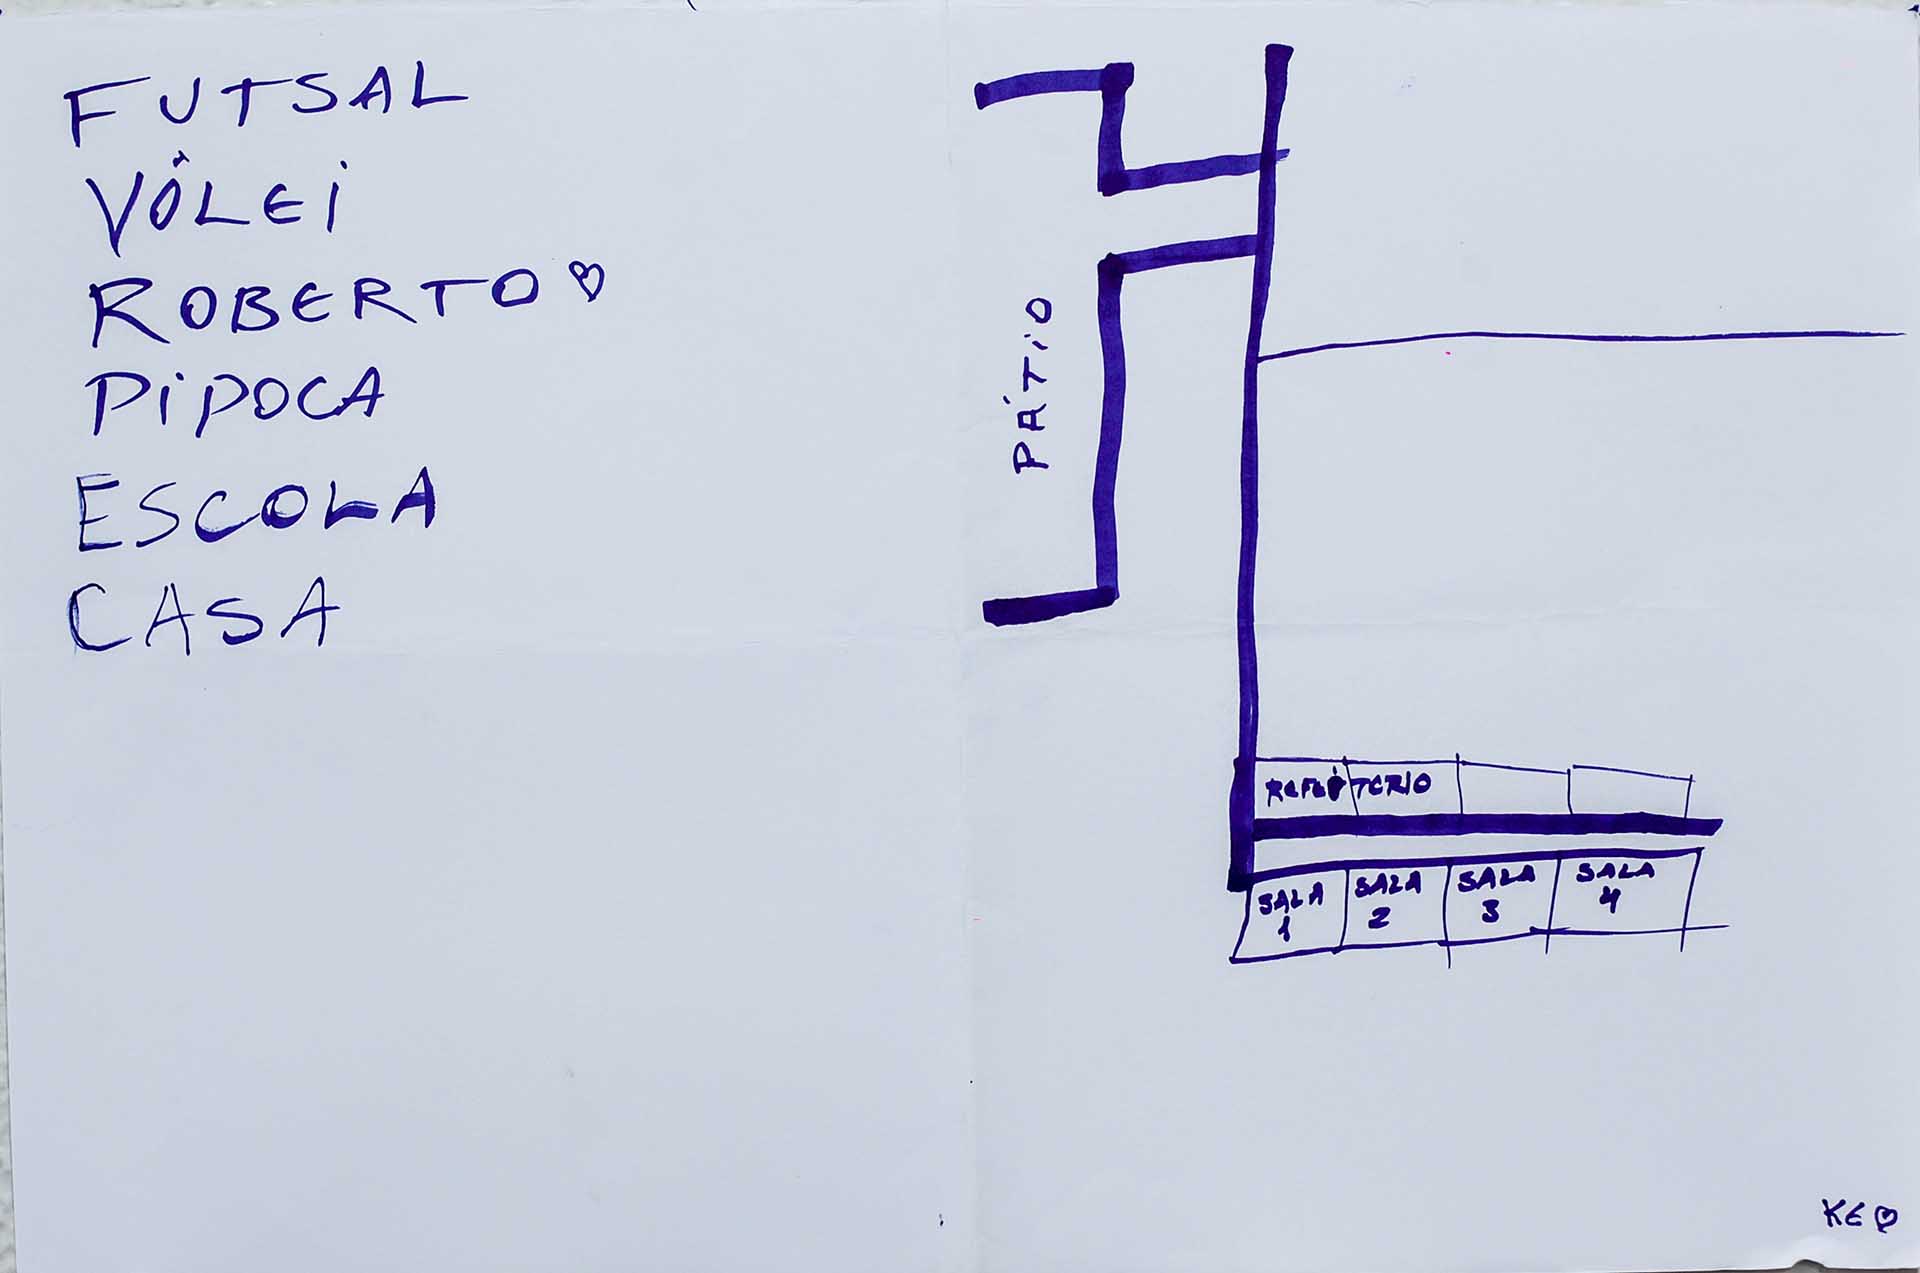 FUTSAL
VÔLEI
ROBERTO ♡
PIPOCA
ESCOLA
CASA
PÁTIO
REFEITÓRIO
SALA 1
SALA 2
SALA 3
SALA 4
KE ♡